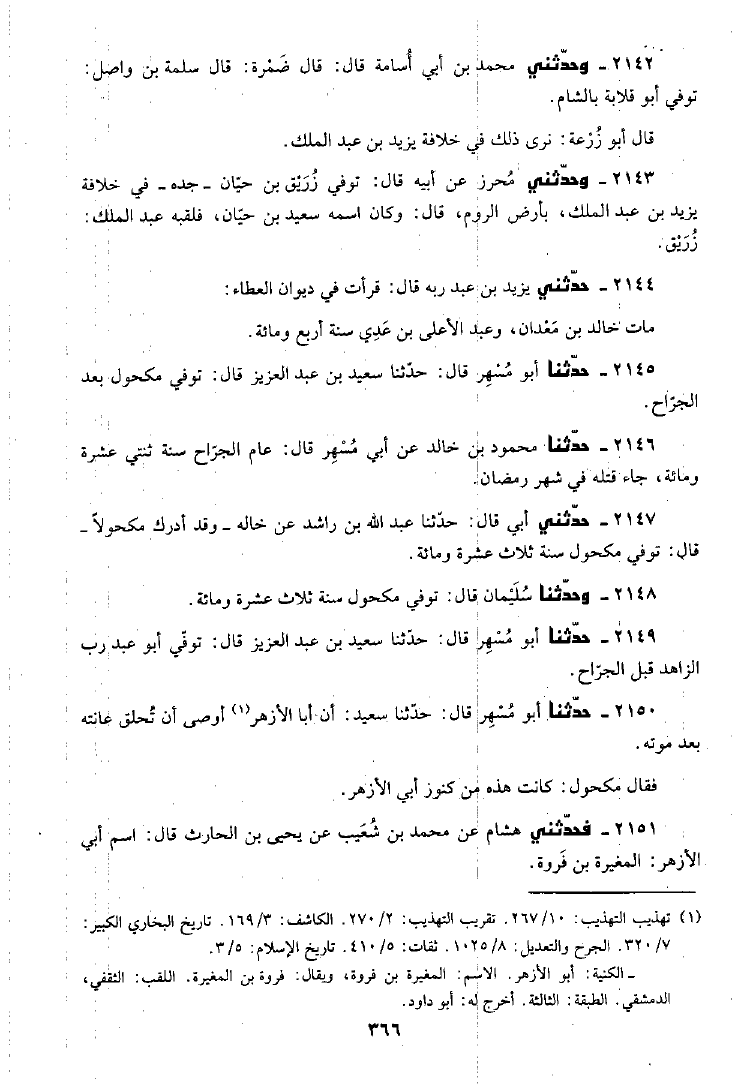 ٢١٤٢ ـ وحدّثني محمد بن أبي أُسامة قال: قال ضَمْرة: قال سلمة بن واصل:
توفي أبو قلابة بالشام.
قال أبو زُرْعة: نرى ذلك في خلافة يزيد بن عبد الملك.
٢١٤٣ ـ وحدّثني مُحرز عن أبيه قال: توفي زُرَيْق بن حيّان ـ جده ـ في خلافة
يزيد بن عبد الملك، بأرض الروم، قال: وكان اسمه سعيد بن حيّان، فلقبه عبد الملك:
زُرَيْق.
٢١٤٤ ـ حدّثني يزيد بن عبد ربه قال: قرأت في ديوان العطاء:
مات خالد بن مَعْدان، وعبد الأعلى بن عَدِي سنة أربع ومائة.
٢١٤٥ ـ حدّثنا أبو مُسْهِر قال: حدّثنا سعيد بن عبد العزيز قال: توفي مكحول بعد
الجرّاح.
٢١٤٦ ـ حدّثنا محمود بن خالد عن أبي مُسْهِر قال: عام الجراح سنة ثنتي عشرة
ومائة، جاء قتله في شهر رمضان.
٢١٤٧ ـ حدّثني أبي قال: حدّثنا عبد الله بن راشد عن خاله ـ وقد أدرك مكحولاً ـ
قال: توفي مكحول سنة ثلاث عشرة ومائة.
٢١٤٨ ـ وحدّثنا سُلَيْمان قال: توفي مكحول سنة ثلاث عشرة ومائة.
٢١٤٩ ـ حدّثنا أبو مُسْهِر قال: حدّثنا سعيد بن عبد العزيز قال: توفّي أبو عبد رب
الزاهد قبل الجرّاح.
٢١٥٠ ـ حدّثنا أبو مُسْهِر قال: حدّثنا سعيد: أن أبا الأزهر(١) أوصى أن تُحلق عانته
بعد موته.
فقال مكحول: كانت هذه من كنوز أبي الأزهر.
٢١٥١ ـ فحدّثني هشام عن محمد بن شُعَيب عن يحيى بن الحارث قال: اسم أبي
الأزهر: المغيرة بن فَروة.
(١) تهذيب التهذيب: ٢٦٧/١٠. تقريب التهذيب: ٢٧٠/٢. الكاشف: ١٦٩/٣. تاريخ البخاري الكبير:
٣٢٠/٧. الجرح والتعديل: ١٠٢٥/٨. ثقات: ٤١٠/٥. تاريخ الإسلام: ٥/٣.
ـ الكنية: أبو الأزهر. الاسم: المغيرة بن فروة، ويقال: فروة بن المغيرة. اللقب: الثقفي،
الدمشقي. الطبقة: الثالثة. أخرج له: أبو داود.
٣٦٦